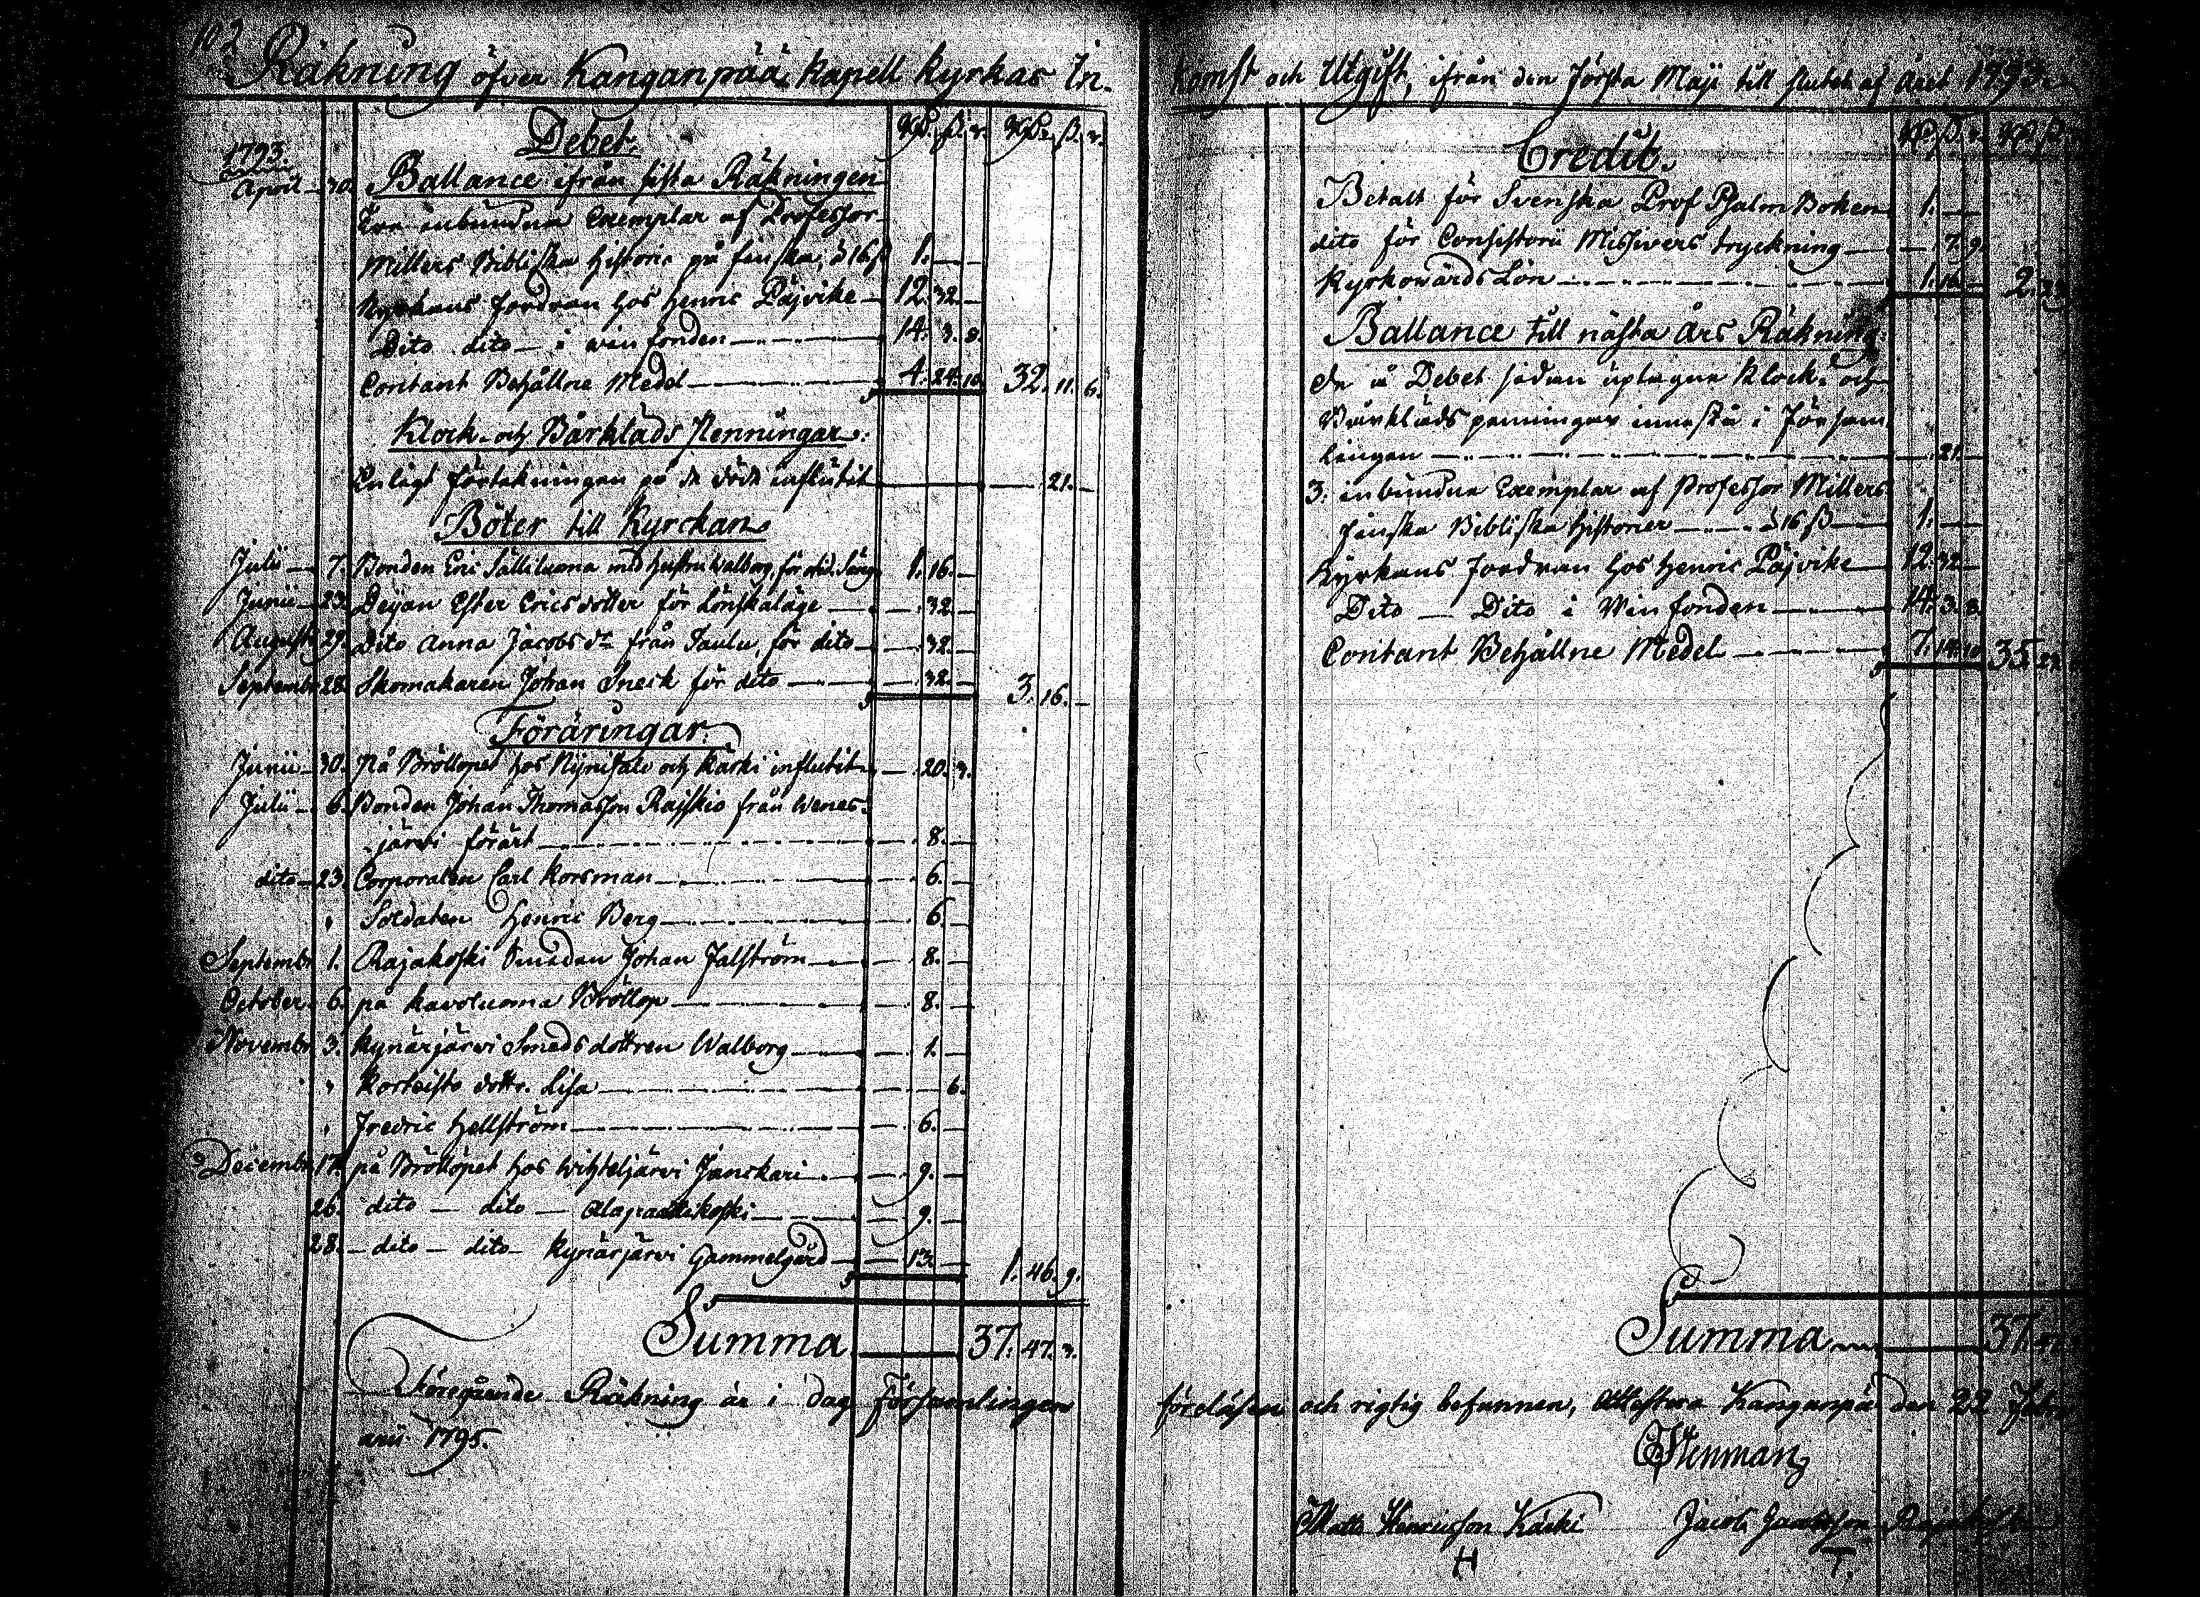 102
Räkning öfver Kanganpää Kapell Kyrkas In-
Debet.
RD. ß. r. RD. ß. r.
1793.
April 30. Ballance ifrån sista Räkningen
Tre inbundna Exemplar af Professor
Millers Bibliska Historie på finska, à 16 ß 1. — —
Kyrkans fordran hos Henric Päjvike — 12. 32. —
Dito dito — i winfonden — 14. 3. 8.
Contant Behållne Medel — 4. 24. 10. 32. 11. 6.
Klock- och Bårkläds Penningar:
Enligt förtekningen på de döde influtit — 21. —
Böter till Kyrckan
Julii — 7. Bonden Eric Sälliluoma med hustru Walborg, för otid. Säng 1. 16. —
Junii — 23. Deijan Ester Ericsdotter för Lönskaläge — 32. —
Augusti 29. Dito Anna Jacobs dr från Taulu, för dito — 32. —
Septembr 28. Skomakaren Johan Sneck för dito — 32. — 3. 16. —
Föräringar.
Junii — 30. På Bröllopet hos Nynisalo och Kärki influtit — 20. 3.
Julii — 6. Bonden Johan Thomasson Rajskio från Wenes-
järvi förärt — 8. —
dito — 23. Corporalen Carl Korsman — 6. —
" Soldaten Henric Berg — 6. —
Septembr 1. Rajakoski Smeden Johan Falström — 8. —
October 6. på Karoluoma Bröllop — 8. —
Novembr 3. Kynärjärvi Smeds dottren Walborg — 1. —
" Korteisto dottr. Lisa — 6.
" Fredric Hellström — 6. —
Decembr 17. på Bröllopet hos Wihteljärvi Janskari — 9. —
26. dito — dito — Alapaattikoski — 9. —
28. — dito — dito — Kynärjärvi Gammelgård — 13. — 1. 46. 9.
Summa — 37. 47. 3.
Föregående Räkning är i dag Församlingen
arii 1795.
komst och Utgift, ifrån den första Maji till slutet af året 1793.
Credit.
RD. ß. r. RD. ß.
Betalt för Svenska Prof Psalm Boken 1. — —
dito för Consistorii Missivers tryckning — 7. 9.
Kyrkowärds Lön — 1. 16. — 2. 23.
Ballance till nästa års Räkning:
De i Debet sidan uptagne Klock- och
Bårkläds penningar innestå i Försam-
lingen — 21. —
3. inbundna Exemplar af Professor Millers
finska Bibliska Historier — à 16 ß — 1. — —
Kyrkans fordran hos Henric Päjvike — 12. 32 —
Dito — Dito i Winfonden — 14. 3. 8.
Contant Behållne Medel — 7. 14. 10. 35. 23.
Summa — 37. 47.
föreläsen och rigtig befunnen, Attestera Kanganpää den 22 Febru
C Stenman
Matts Henricsson Kärki Jacob Jacobsson Rajakoski
H T.